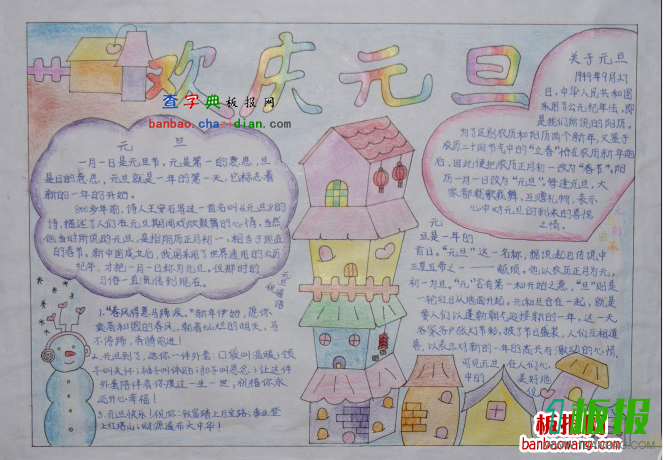 欢庆元旦
查字典板报网
banbao.chazidian.com
元 旦
一月一日是元旦节,元是第一的意思,旦
是日的意思,元旦就是一年的第一天,它标志着
新的一年的开始。
800多年前,诗人王安石写过一首名叫《元旦》的
诗,描述了人们在元旦期间欢欣鼓舞的心情,当然
他当时所说的元旦,是指阴历正月初一,相当于现在
的春节。新中国成立后,我国采用了世界通用的公历
纪年,才把一月一日称为元旦,但那时的
习俗一直流传到现在。
关于元旦
1949年9月27
日,中华人民共和国
采用了公元纪年法,即
是我们所说的阳历。
为了区别农历和阳历两个新年,又鉴于
农历二十四节气中的“立春”恰在农历新年前
后,因此便把农历正月初一改为“春节”,阳
历一月一日改为“元旦”。每逢元旦,大
家都载歌载舞,互赠礼物,表示
心中对元旦的到来的喜悦
之情。
元旦祝福语
1、“春风得意马蹄疾”,新年伊始,愿你
乘着和煦的春风,朝着灿烂的明天,马
不停蹄,奔腾前进!
2、元旦到了,送你一件外套:口袋叫温暖;领
子叫关怀;袖子叫体贴;扣子叫思念;让这件
外套陪伴着你度过一生一世,祝福你永
远开心幸福!
3、元旦快乐!祝你:致富踏上万宝路;事业登
上红塔山;财源遍布大中华!
元
旦是一年的
首日。“元旦”这一名称,据说起自传说中
三皇五帝之一——颛顼。他以农历正月为元,
初一为旦。“元”含有第一和开始之意,“旦”则是
一轮红日从地面升起。元和旦合在一起,就是
要人们以蓬勃朝气迎接新的一年。这一天,
家家户户张灯结彩,披了节日盛装,人们互相道
喜,以表示对新的一年的高兴与激动的心情。
可见元旦在人们心
中的
美好地
位
板报网
banbaowang.com
板报